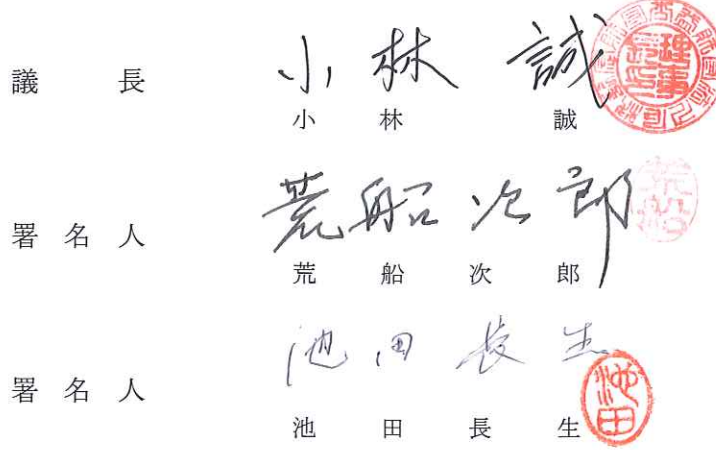 議長 小林誠
小林誠
署名人 荒船次郎 荒船
荒船次郎
署名人 池田長生
池田長生 池田